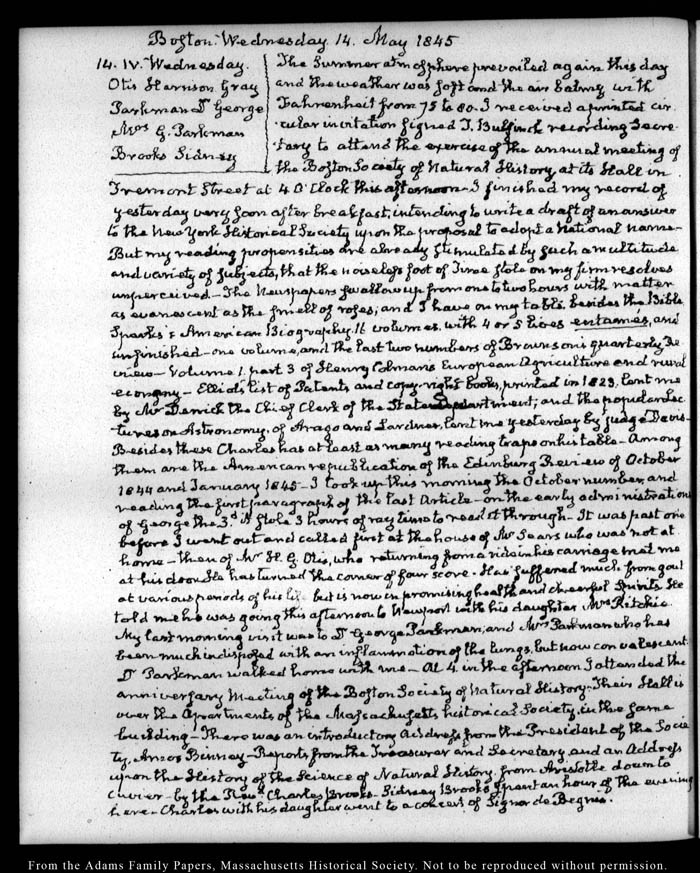 Boston. Wednesday 14. May 1845
14. IV. Wednesday.
Otis Harrison Gray
Parkman Dr. George
Mrs G. Parkman
Brooks Sidney
The Summer atmosphere prevailed again this day
and the weather was soft and the air balmy with
Fahrenheit from 75 to 80. I received a printed cir-
cular invitation signed T. Bulfinch recording Secre-
tary to attend the exercise of the annual meeting of
the Boston Society of Natural History, at its Hall in
Tremont Street at 4 O'Clock this afternoon. I finished my record of
yesterday very soon after breakfast, intending to write a draft of an answer
to the New York Historical Society upon the proposal to adopt a National name-
But my reading propensities are already stimulated by such a multitude
and variety of subjects, that the noiseless foot of Time stole on my firm resolves
unperceived - The Newspapers swallow up from one to two hours with matter
as evanescent as the smell of roses; and I have on my table besides the Bible
Sparks's American Biography 16 volumes, with 4 or 5 lives entamés, and
unfinished - one volume, and the last two numbers of Brownson's quarterly Re-
view - Volume 1. part 3 of Henry Colmans European Agriculture and rural
economy - Ellis's list of Patents, and copy-right books, printed in 1823, lent me
by Mr Derrick the Chief Clerk of the State Department; and the popular lec-
tures on Astronomy, of Arago and Lardner, lent me yesterday by Judge Davis -
Besides these Charles has at least as many reading traps on his table - Among
them are the American republication of the Edinburg Review of October
1844 and January 1845 - I took up this morning the October number, and
reading the first paragraph of the last Article - on the early administrations
of George the 3d. it stole 3 hours of my time to read it through - It was past one
before I went out and called first at the house of Mr Sears who was not at
home - then of Mr H. G. Otis, who returning from a ride in his carriage met me
at his door. He has turned the corner of four score. Has suffered much from gout
at various periods of his life but is now in promising health and cheerful spirits. He
told me he was going this afternoon to Newport with his daughter Mrs Ritchie
My last morning visit was to Dr George Parkman; and Mrs Parkman who has
been much indisposed with an inflammation of the lungs, but now convalescent.
Dr Parkman walked home with me - At 4 in the afternoon I attended the
anniversary Meeting of the Boston Society of Natural History. Their Hall is
over the Apartments of the Massachusetts historical Society, in the same
building - There was an introductory Address from the President of the Socie-
ty, Amos Binney - Reports from the Treasurer and Secretary, and an Address
upon the History of the Science of Natural History, from Aristotle down to
Cuvier - by the Revd. Charles Brooks - Sidney Brooks spent an hour of the evening
here. Charles with his daughter went to a concert of Signor de Begnis.
From the Adams Family Papers, Massachusetts Historical Society. Not to be reproduced without permission.